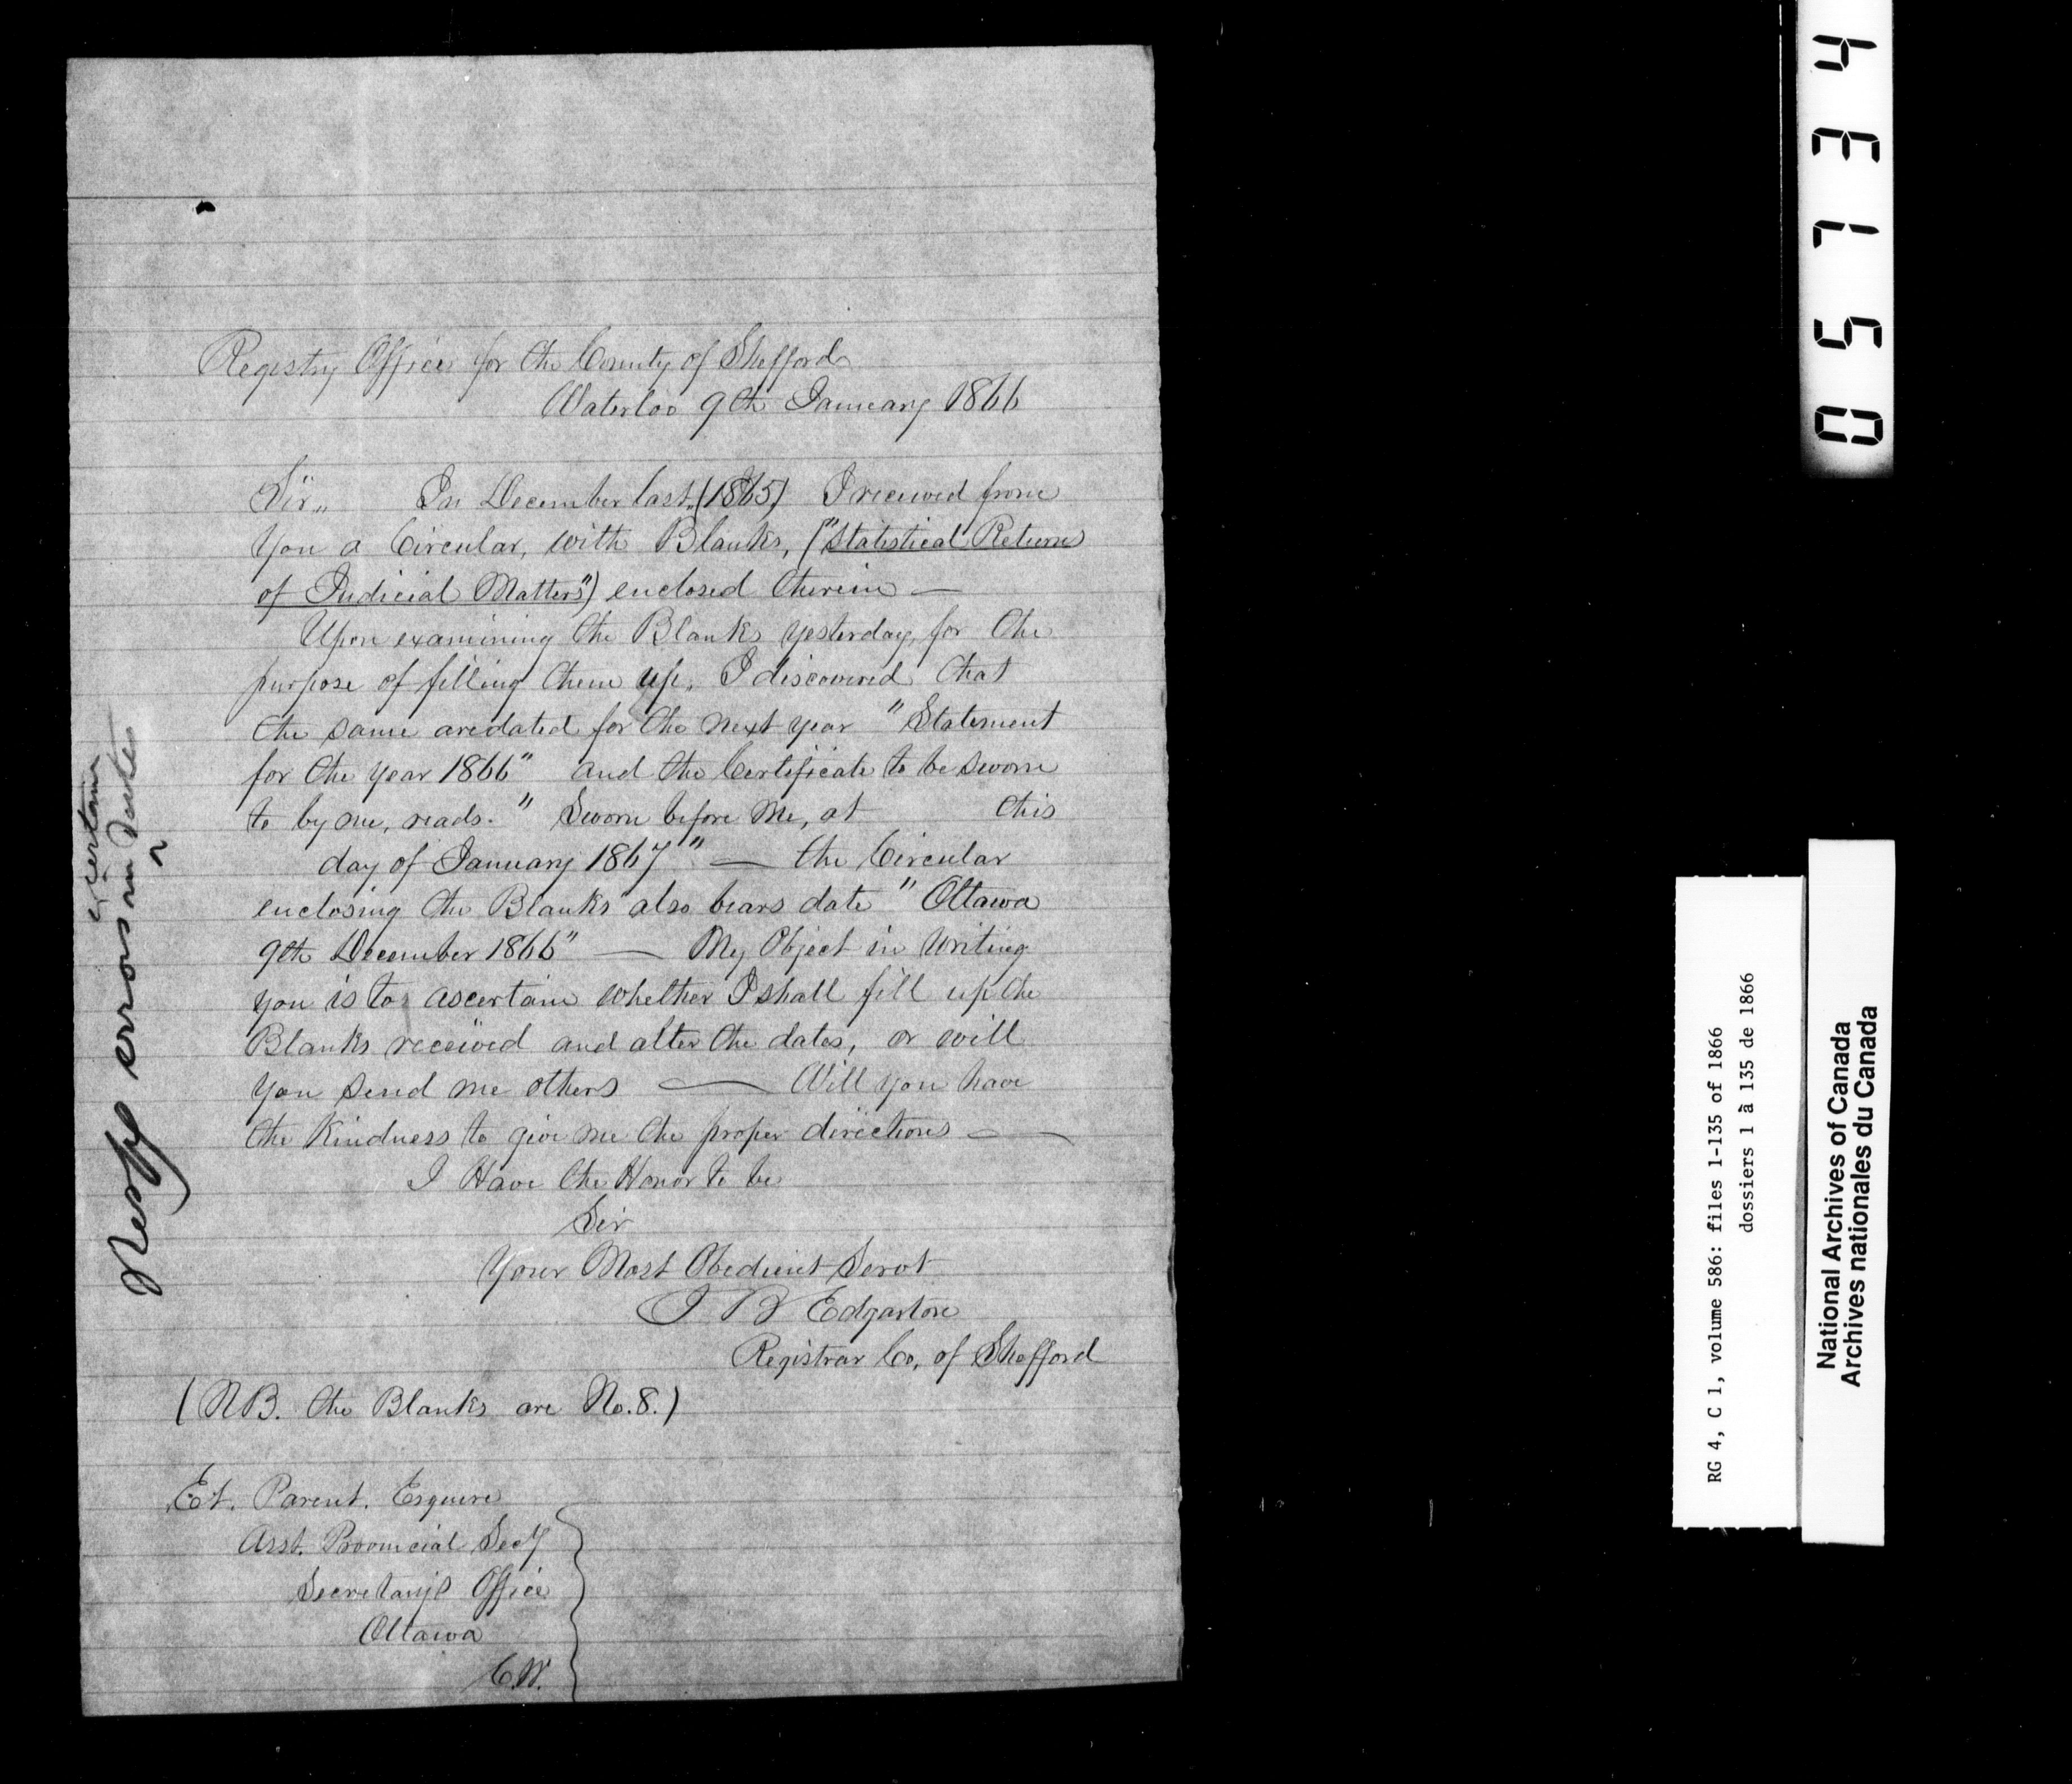 Registry Office for the County of Shefford
Waterloo 9th January 1866
Sir,, In December last, (1865) I received from
You a Circular, with Blanks, ("Statistical Return
of Judicial Matters") enclosed therein —
Upon examining the Blanks yesterday, for the
purpose of filling them up, I discovered that
the same are dated for the next year "Statement
for the year 1866" and the Certificate to be sworn
to by me, reads. " Sworn before me, at this
day of January 1867" — the Circular
enclosing the Blanks also bears date "Ottawa
9th December 1866" — My Object in writing
you is to ascertain whether I shall fill up the
Blanks received and alter the dates, or will
you send me others — Will you have
the Kindness to give me the proper directions —
I Have the Honor to be
Sir
Your Most Obedient Servt
J B Edgarton
Registrar Co. of Shefford
(NB. the Blanks are No. 8.)
Et. Parent. Esquire
Asst. Provincial Secy
Secretary's Office
Ottawa
C.W.
certain
errors in dates
05734
RG 4, C 1, volume 586: files 1-135 of 1866
dossiers 1 à 135 de 1866
National Archives of Canada
Archives nationales du Canada